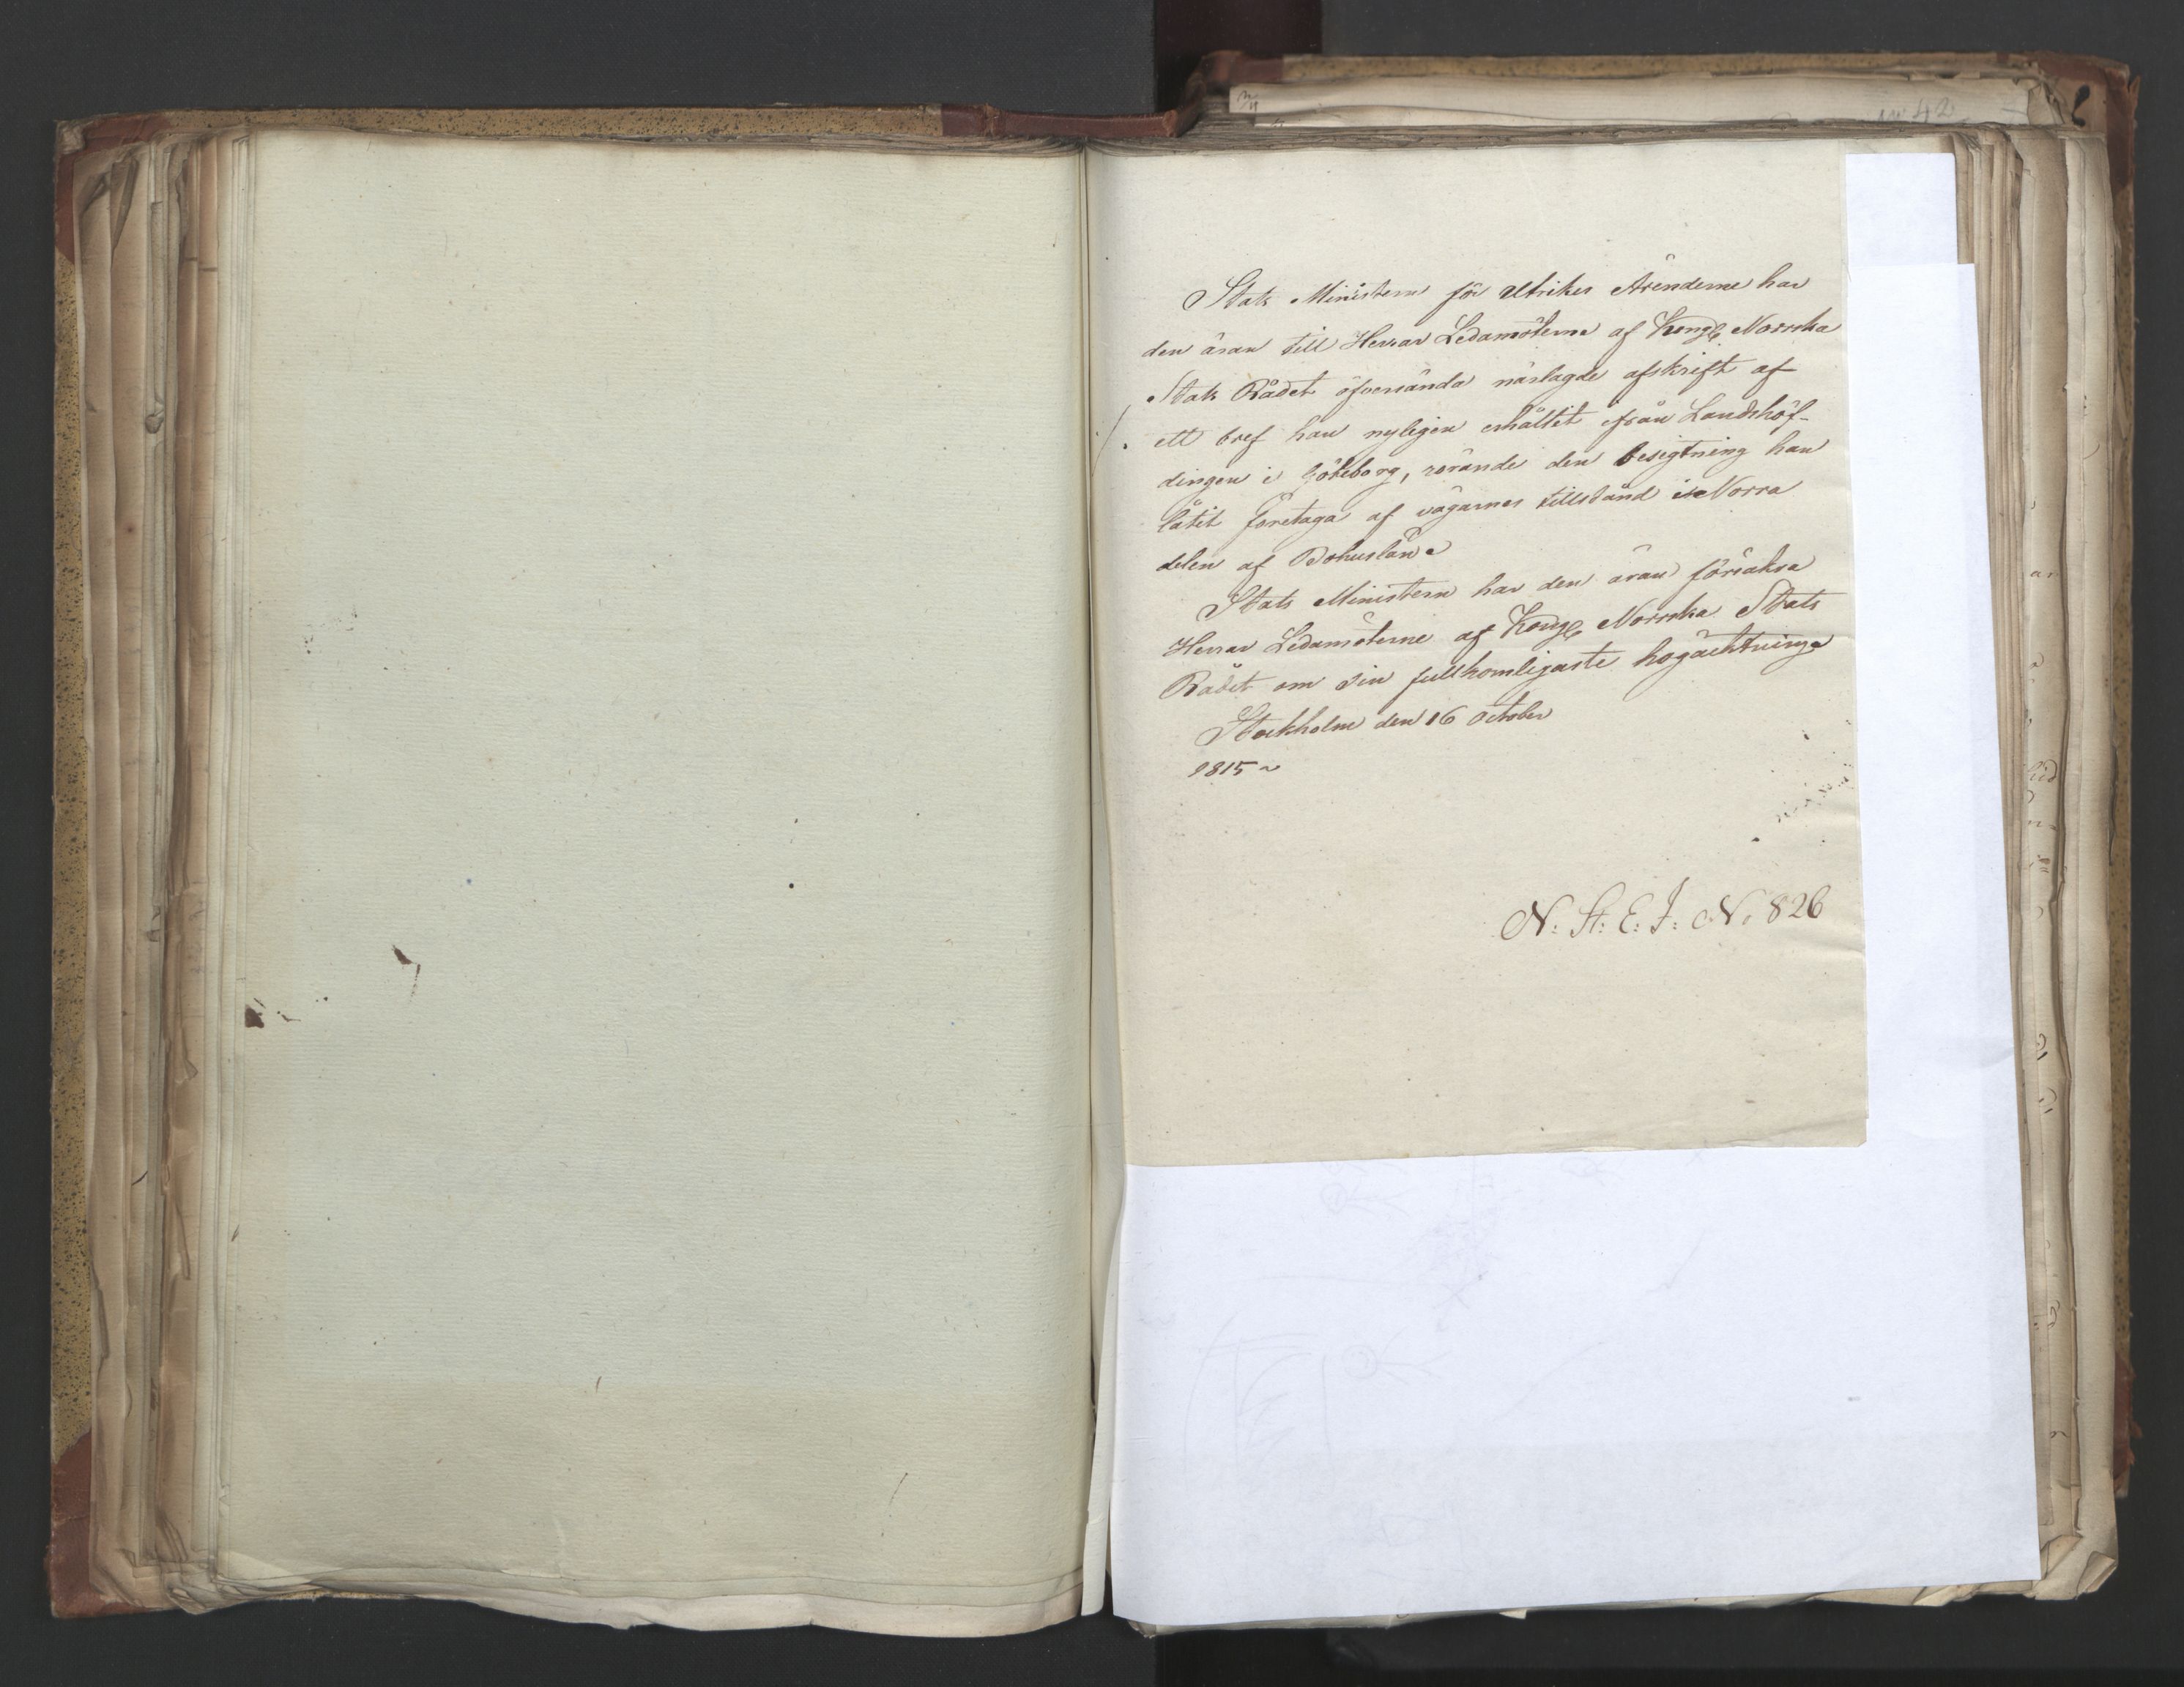 Stats Ministern för Utrikes Ärenderne har
den äran till Herrar Ledamöterne af Kongl. Norrska
Stats Rådet öfversända närlagde afskrift af
ett bref han nyligen erhållit ifrån Landshöf-
dingen i Göteborg, rörande den besigtning han
låtit företaga af vägarnes tillstånd i Norra
delen af Bohuslän.
Stats Ministern har den äran försäkra
Herrar Ledamöterne af Kongl. Norrska Stats
Rådet om sin fullkomligaste högachtning.
Stockholm den 16 October
1815 ~
N: St: E: J: No 826